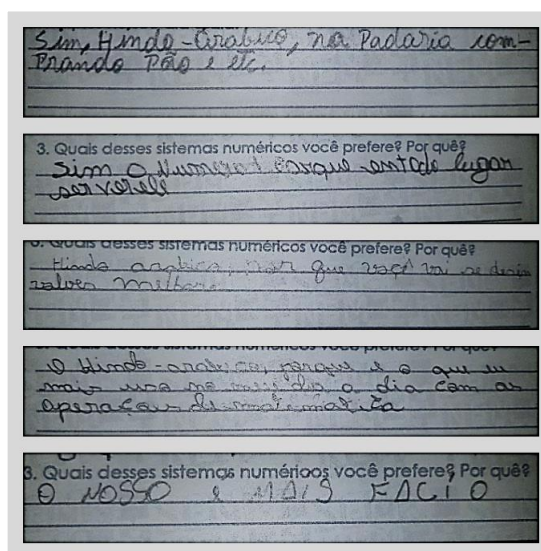 Sim, Hindo-Arabico, na Padaria com-
prando Pão e etc.
3. Quais desses sistemas numéricos você prefere? Por quê?
Sim O Numero 1 Porque em todo lugar
ser ver ele
3. Quais desses sistemas numéricos você prefere? Por quê?
Hindo arabico, por que você vai se desin
volver melhor
O Hindo-arabico, porque e o que eu
mais uso no meu dia a dia com as
operações de matematica
3. Quais desses sistemas numéricos você prefere? Por quê?
O NOSSO e MAIS FACIO